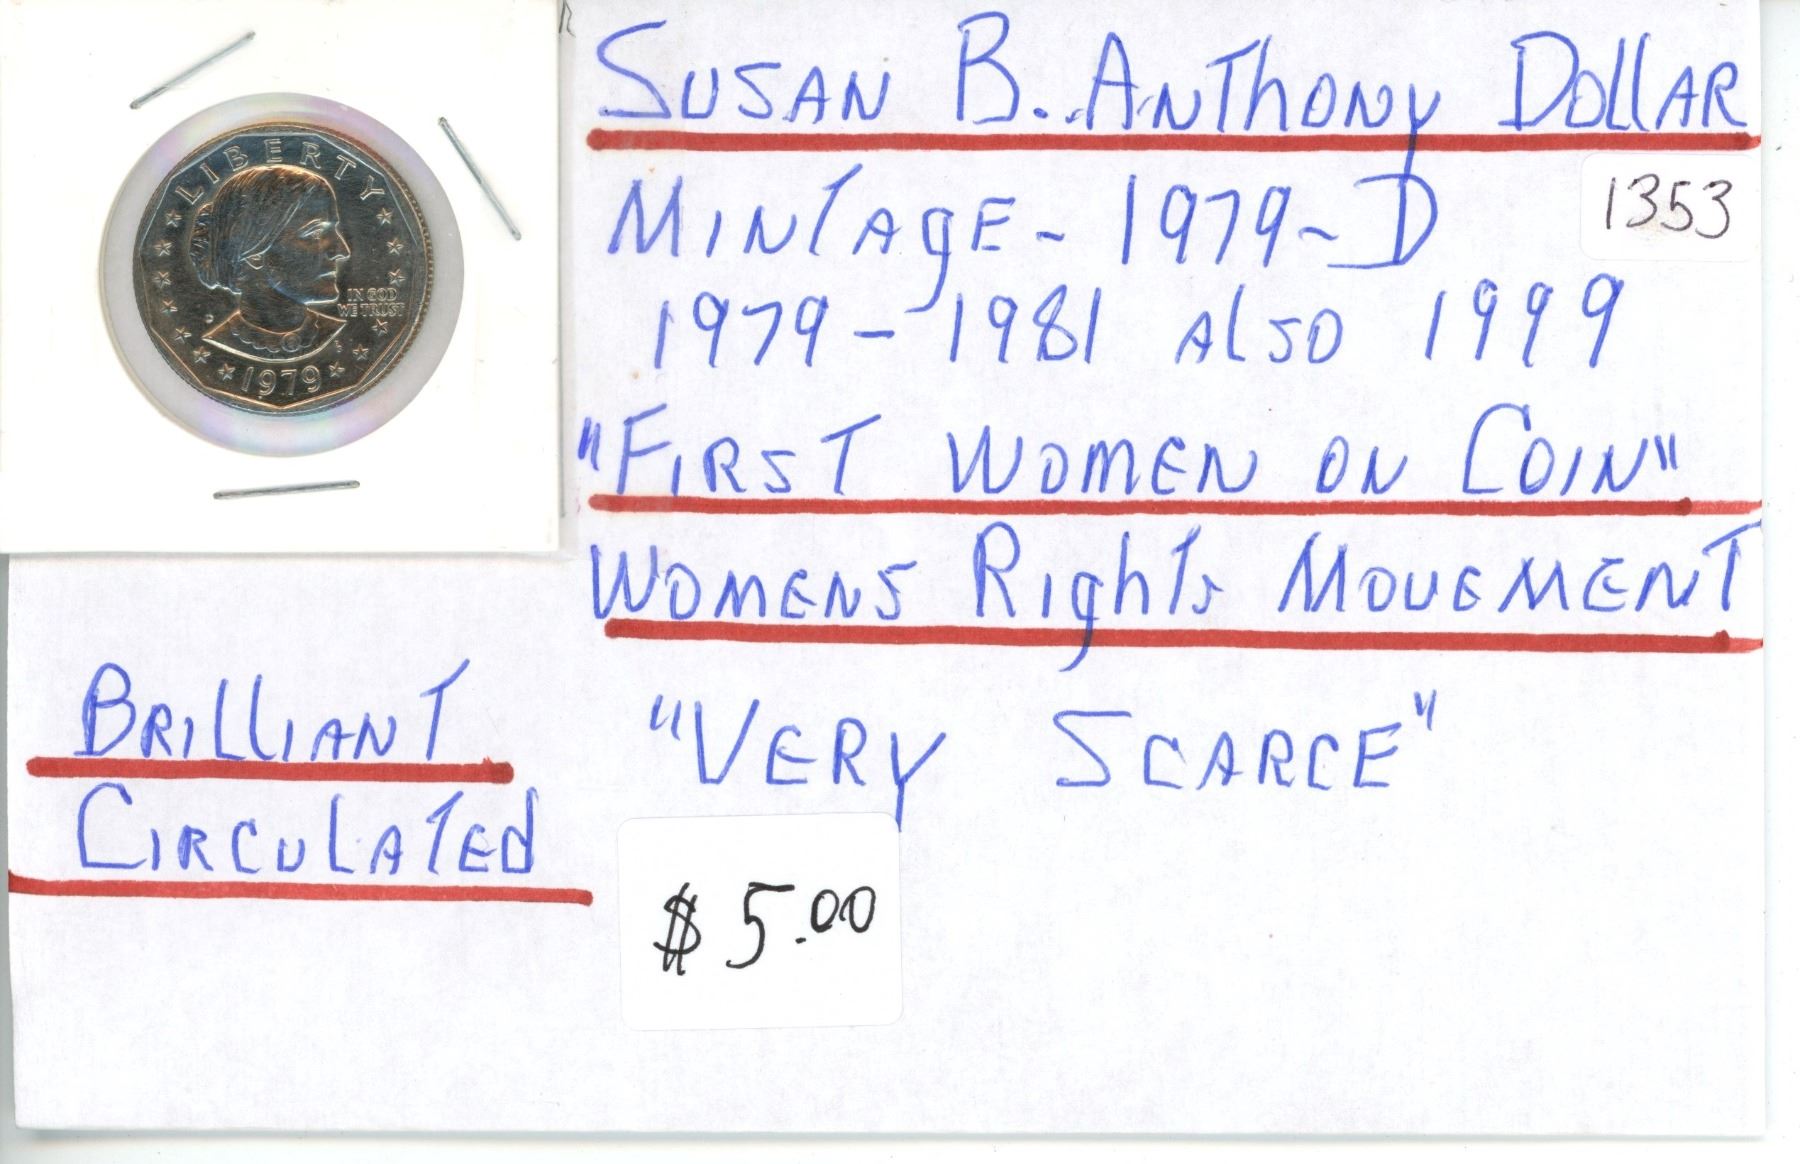 SUSAN B. ANTHONY DOLLAR
MINTAGE - 1979-D
1353
1979-1981 ALSO 1999
"FIRST WOMEN ON COIN"
WOMENS RIGHTS MOVEMENT
BRILLIANT
CIRCULATED
"VERY SCARCE"
$5.00
LIBERTY
IN GOD
WE TRUST
D
1979